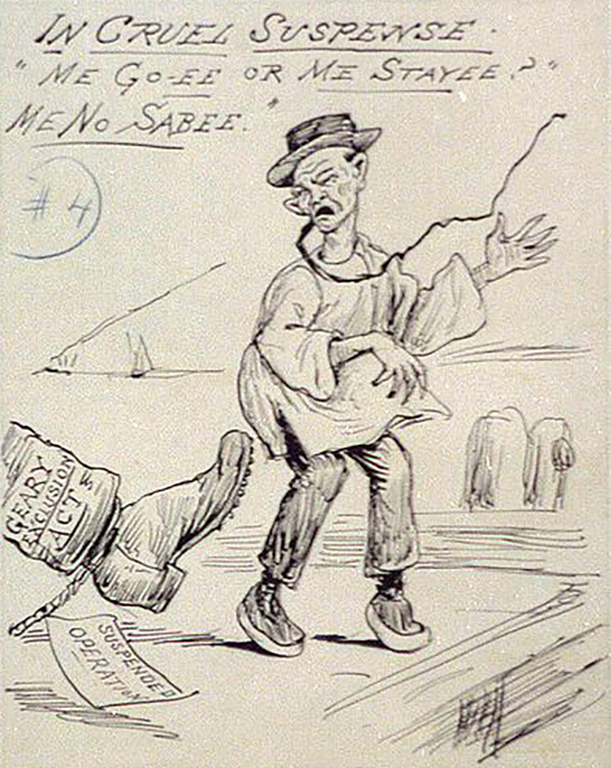 IN CRUEL SUSPENSE.
"ME GO-EE OR ME STAYEE?"
ME NO SABEE."
# 4
GEARY
EXCLUSION
ACT
SUSPENDED
OPERATION